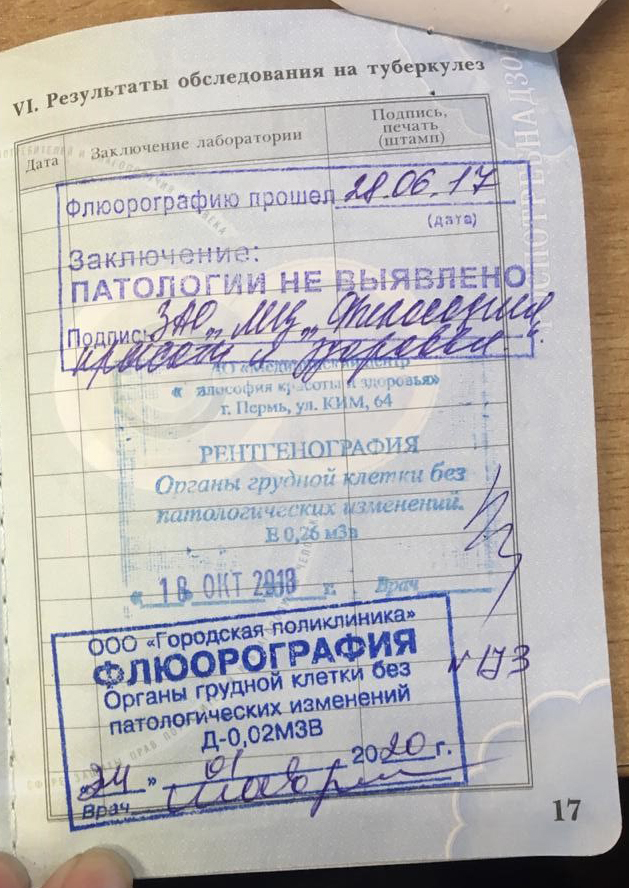 VI. Результаты обследования на туберкулез
Дата
Заключение лаборатории
Подпись,
печать
(штамп)
Флюорографию прошел 28.06.17
(дата)
Заключение:
ПАТОЛОГИИ НЕ ВЫЯВЛЕНО
Подпись ЗАО „МЦ „Философия
красоты и здоровья“.
АО «Медицинский центр
« илософия красоты и здоровья»
г. Пермь, ул. КИМ, 64
РЕНТГЕНОГРАФИЯ
Органы грудной клетки без
патологических изменений.
В 0,26 мЗв
« 18 ОКТ 2018 г. Врач
ООО «Городская поликлиника»
ФЛЮОРОГРАФИЯ
Органы грудной клетки без
патологических изменений
Д-0,02МЗВ
N 173
«24» 01 2020 г.
Врач
17